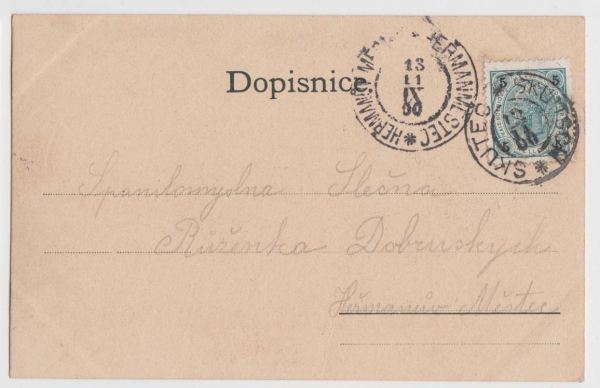 Dopisnice.
HEŘMANŮV MĚSTEC * HERMANNMESTEC
13
11
IX
00
5 5
SKUTEC *
Spanilomyslna Slečna
Růženka Dobruských
Heřmanův Městec